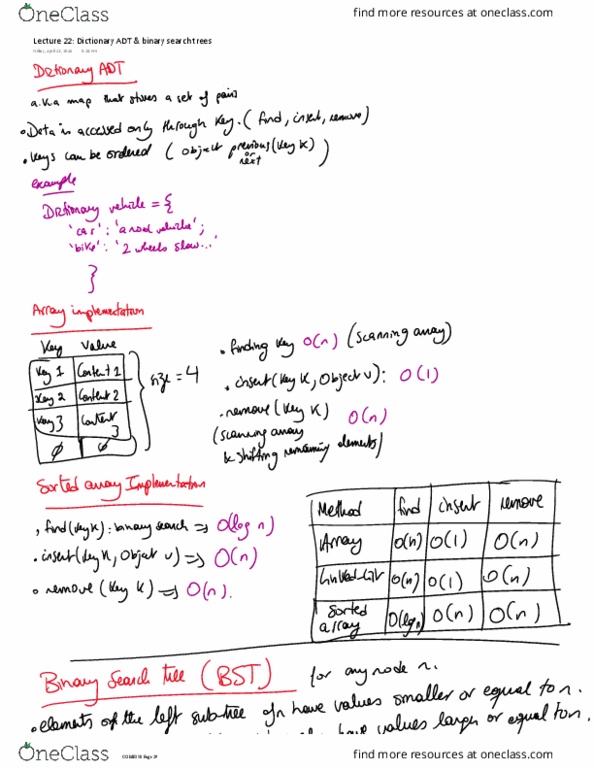 OneClass
find more resources at oneclass.com
Lecture 22: Dictionary ADT & binary search trees
Dictionary ADT
a.k.a map that stores a set of pairs
• Data is accessed only through key. (find, insert, remove)
• Keys can be ordered ( Object previous (Key k) )
or
next
example
Dictionary vehicle = {
'car': 'a road vehicle';
'bike': '2 wheels slow...'
}
Array implementation
Key Value
Key 1 Content 1
Key 2 Content 2
Key 3 Content 3
∅ ∅
size = 4
• finding key O(n) (scanning array)
• insert (Key K, Object v): O(1)
• remove (Key K) O(n)
(scanning array
& shifting remaining elements)
Sorted array Implementation
• find (Key K): binary search => O(log n)
• insert (Key K, Object v) => O(n)
• remove (Key K) => O(n).
Method find insert remove
Array O(n) O(1) O(n)
Linked-List O(n) O(1) O(n)
Sorted array O(log n) O(n) O(n)
Binary Search tree (BST)
for any node n.
• elements of the left sub-tree of n have values smaller or equal to n.
have values larger or equal to n.
OneClass
find more resources at oneclass.com